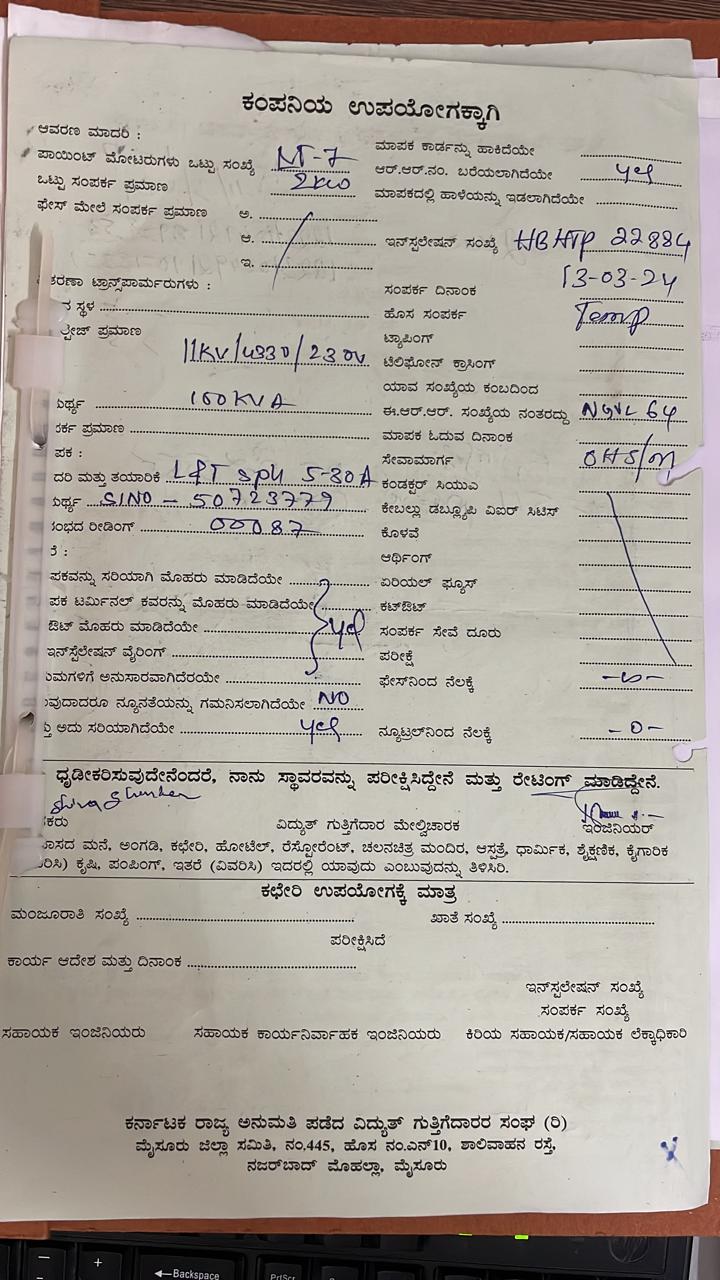 ಕಂಪನಿಯ ಉಪಯೋಗಕ್ಕಾಗಿ
ಆವರಣ ಮಾದರಿ :
ಮಾಪಕ ಕಾರ್ಡನ್ನು ಹಾಕಿದೆಯೇ
ಪಾಯಿಂಟ್ ಮೋಟರುಗಳು ಒಟ್ಟು ಸಂಖ್ಯೆ LT-7
ಆರ್.ಆರ್.ನಂ. ಬರೆಯಲಾಗಿದೆಯೇ yes
ಒಟ್ಟು ಸಂಪರ್ಕ ಪ್ರಮಾಣ 2KW
ಮಾಪಕದಲ್ಲಿ ಹಾಳೆಯನ್ನು ಇಡಲಾಗಿದೆಯೇ
ಫೇಸ್ ಮೇಲೆ ಸಂಪರ್ಕ ಪ್ರಮಾಣ ಅ.
ಆ.
ಇನ್‌ಸ್ಪಲೇಷನ್ ಸಂಖ್ಯೆ HBHTP 22884
ಇ.
ಕರಣಾ ಟ್ರಾನ್ಸ್‌ಪಾರ್ಮರುಗಳು :
ಸಂಪರ್ಕ ದಿನಾಂಕ 13-03-24
ನ ಸ್ಥಳ
ಹೊಸ ಸಂಪರ್ಕ Temp
ಲ್ಟೇಜ್ ಪ್ರಮಾಣ
ಟ್ಯಾಪಿಂಗ್
11KV/4330/230V
ಟೆಲಿಫೋನ್ ಕ್ರಾಸಿಂಗ್
ಯಾವ ಸಂಖ್ಯೆಯ ಕಂಬದಿಂದ
ಮರ್ಥ್ಯ 100KVA
ಈ.ಆರ್.ಆರ್. ಸಂಖ್ಯೆಯ ನಂತರದ್ದು NGVL 64
ಪರ್ಕ ಪ್ರಮಾಣ
ಮಾಪಕ ಓದುವ ದಿನಾಂಕ
ಪಕ :
ಸೇವಾಮಾರ್ಗ OHS/M
ದರಿ ಮತ್ತು ತಯಾರಿಕೆ L&T SPH 5-30A
ಕಂಡಕ್ಟರ್ ಸಿಯುಎ
ಮರ್ಥ್ಯ SlNO - 50723779
ಕೇಬಲ್ಲು ಡಬ್ಲ್ಯೂಪಿ ವಿಐರ್ ಸಿಟಿಸ್
ಂಭದ ರೀಡಿಂಗ್ 00087
ಕೊಳವೆ
ರೆ :
ಅರ್ಥಿಂಗ್
ಪಕವನ್ನು ಸರಿಯಾಗಿ ಮೊಹರು ಮಾಡಿದೆಯೇ
ಏರಿಯಲ್ ಫ್ಯೂಸ್
ಪಕ ಟರ್ಮಿನಲ್ ಕವರನ್ನು ಮೊಹರು ಮಾಡಿದೆಯೇ
ಕಟ್‌ಔಟ್
ಔಟ್ ಮೊಹರು ಮಾಡಿದೆಯೇ yes
ಸಂಪರ್ಕ ಸೇವೆ ದೂರು
ಇನ್‌ಸ್ಟೆಲೇಷನ್ ವೈರಿಂಗ್
ಪರೀಕ್ಷೆ
ಯಮಗಳಿಗೆ ಅನುಸಾರವಾಗಿದೆರಯೇ
ಫೇಸ್‌ನಿಂದ ನೆಲಕ್ಕೆ -0-
ವುದಾದರೂ ನ್ಯೂನತೆಯನ್ನು ಗಮನಿಸಲಾಗಿದೆಯೇ NO
ತ್ತು ಅದು ಸರಿಯಾಗಿದೆಯೇ yes
ನ್ಯೂಟ್ರಲ್‌ನಿಂದ ನೆಲಕ್ಕೆ -0-
ಧೃಡೀಕರಿಸುವುದೇನೆಂದರೆ, ನಾನು ಸ್ಥಾವರವನ್ನು ಪರೀಕ್ಷಿಸಿದ್ದೇನೆ ಮತ್ತು ರೇಟಿಂಗ್ ಮಾಡಿದ್ದೇನೆ.
ಕರು ವಿದ್ಯುತ್ ಗುತ್ತಿಗೆದಾರ ಮೇಲ್ವಿಚಾರಕ ಇಂಜಿನಿಯರ್
ಾಸದ ಮನೆ, ಅಂಗಡಿ, ಕಛೇರಿ, ಹೋಟೆಲ್, ರೆಸ್ಟೋರೆಂಟ್, ಚಲನಚಿತ್ರ ಮಂದಿರ, ಆಸ್ಪತ್ರೆ, ಧಾರ್ಮಿಕ, ಶೈಕ್ಷಣಿಕ, ಕೈಗಾರಿಕ
ರಿಸಿ) ಕೃಷಿ, ಪಂಪಿಂಗ್, ಇತರೆ (ವಿವರಿಸಿ) ಇದರಲ್ಲಿ ಯಾವುದು ಎಂಬುವುದನ್ನು ತಿಳಿಸಿರಿ.
ಕಛೇರಿ ಉಪಯೋಗಕ್ಕೆ ಮಾತ್ರ
ಮಂಜೂರಾತಿ ಸಂಖ್ಯೆ ಖಾತೆ ಸಂಖ್ಯೆ
ಪರೀಕ್ಷಿಸಿದೆ
ಕಾರ್ಯ ಆದೇಶ ಮತ್ತು ದಿನಾಂಕ
ಇನ್‌ಸ್ಪಲೇಷನ್ ಸಂಖ್ಯೆ
ಸಂಪರ್ಕ ಸಂಖ್ಯೆ
ಸಹಾಯಕ ಇಂಜಿನಿಯರು ಸಹಾಯಕ ಕಾರ್ಯನಿರ್ವಾಹಕ ಇಂಜಿನಿಯರು ಕಿರಿಯ ಸಹಾಯಕ/ಸಹಾಯಕ ಲೆಕ್ಕಾಧಿಕಾರಿ
ಕರ್ನಾಟಕ ರಾಜ್ಯ ಅನುಮತಿ ಪಡೆದ ವಿದ್ಯುತ್ ಗುತ್ತಿಗೆದಾರರ ಸಂಘ (ರಿ)
ಮೈಸೂರು ಜಿಲ್ಲಾ ಸಮಿತಿ, ನಂ.445, ಹೊಸ ನಂ.ಎನ್10, ಶಾಲಿವಾಹನ ರಸ್ತೆ,
ನಜರ್‌ಬಾದ್ ಮೊಹಲ್ಲಾ, ಮೈಸೂರು
Backspace
PrtScr